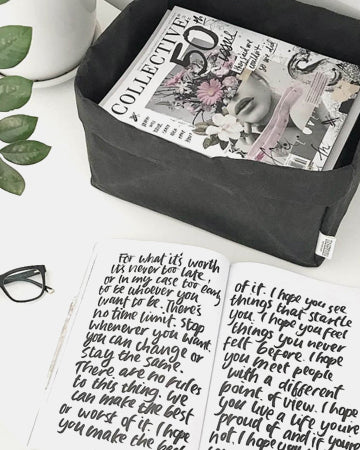 COLLECTIVE
50th
issue
For what it's worth
it's never too late
or in my case too early
to be whoever you
want to be. There's
no time limit. Stop
whenever you want.
you can change or
stay the same.
There are no rules
to this thing. We
can make the best
or worst of it. I hope
you make the best
of it. I hope you see
things that startle
you. I hope you feel
things you never
felt before. I hope
you meet people
with a different
point of view. I hope
you live a life you're
proud of and if you're
not. I hope you